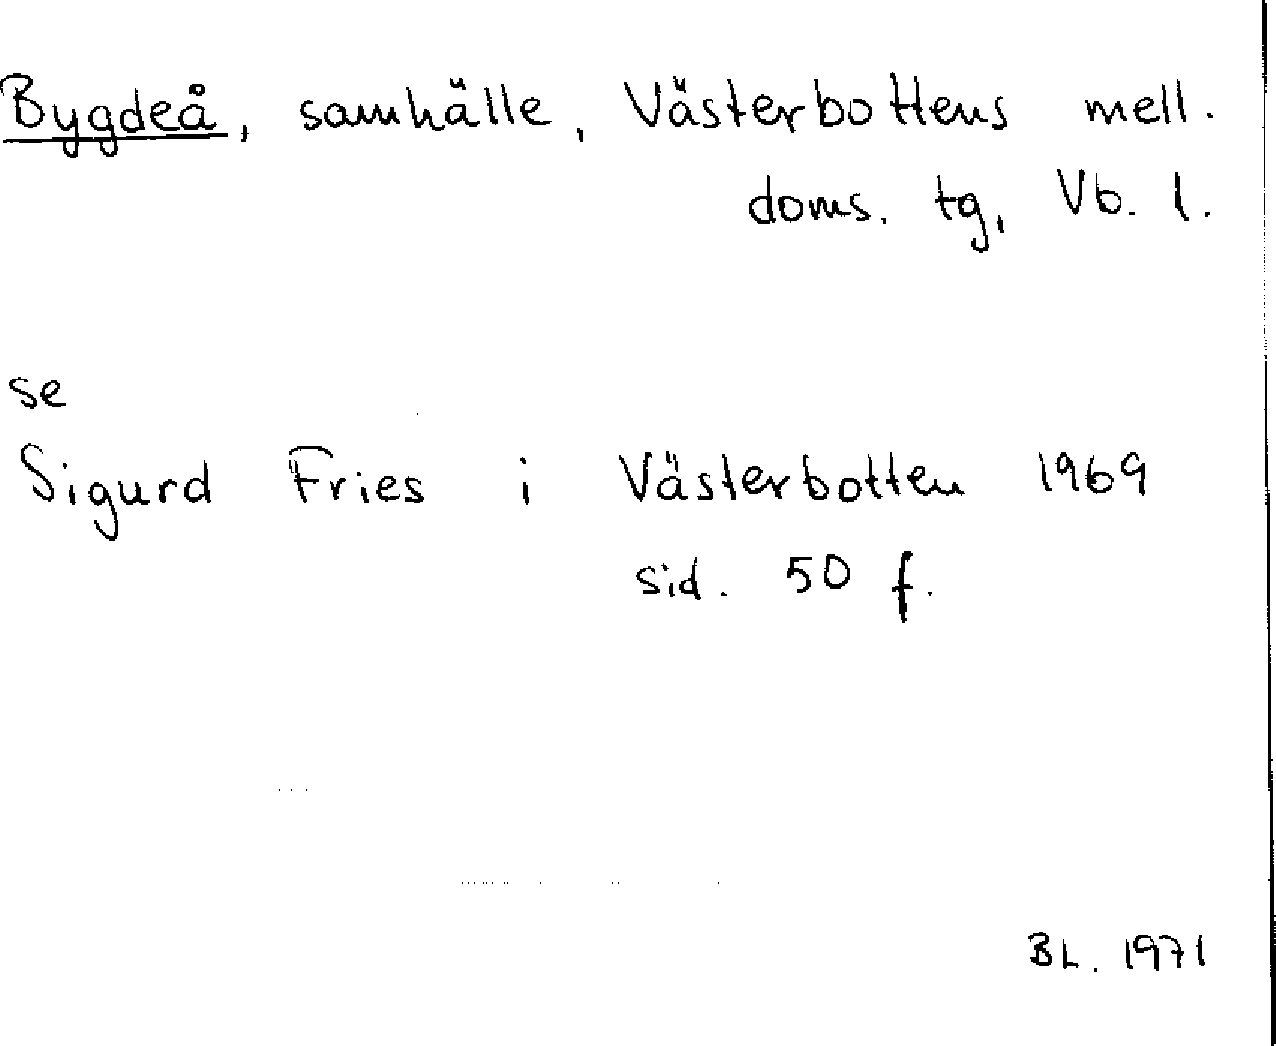 Bygdeå, samhälle, Västerbottens mell.
doms. tg, Vb. l.
se
Sigurd Fries i Västerbotten 1969
sid. 50 f.
BL. 1971